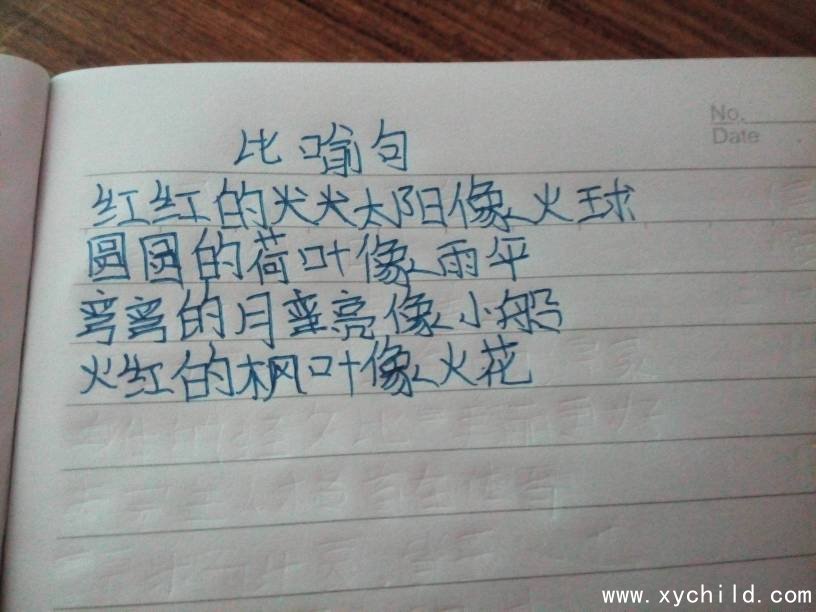 No.
Date
比喻句
红红的犬犬太阳像火球
圆圆的荷叶像雨平
弯弯的月亮像小船
火红的枫叶像火花
www.xychild.com